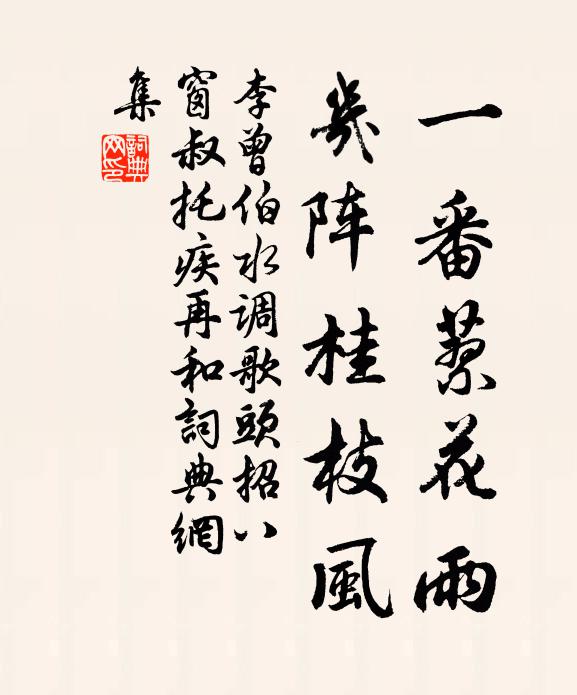 一番蓼花雨
幾阵桂枝風
李曾伯水调歌頭招八
窗叔托疾再和詞典網
集
詞典網印